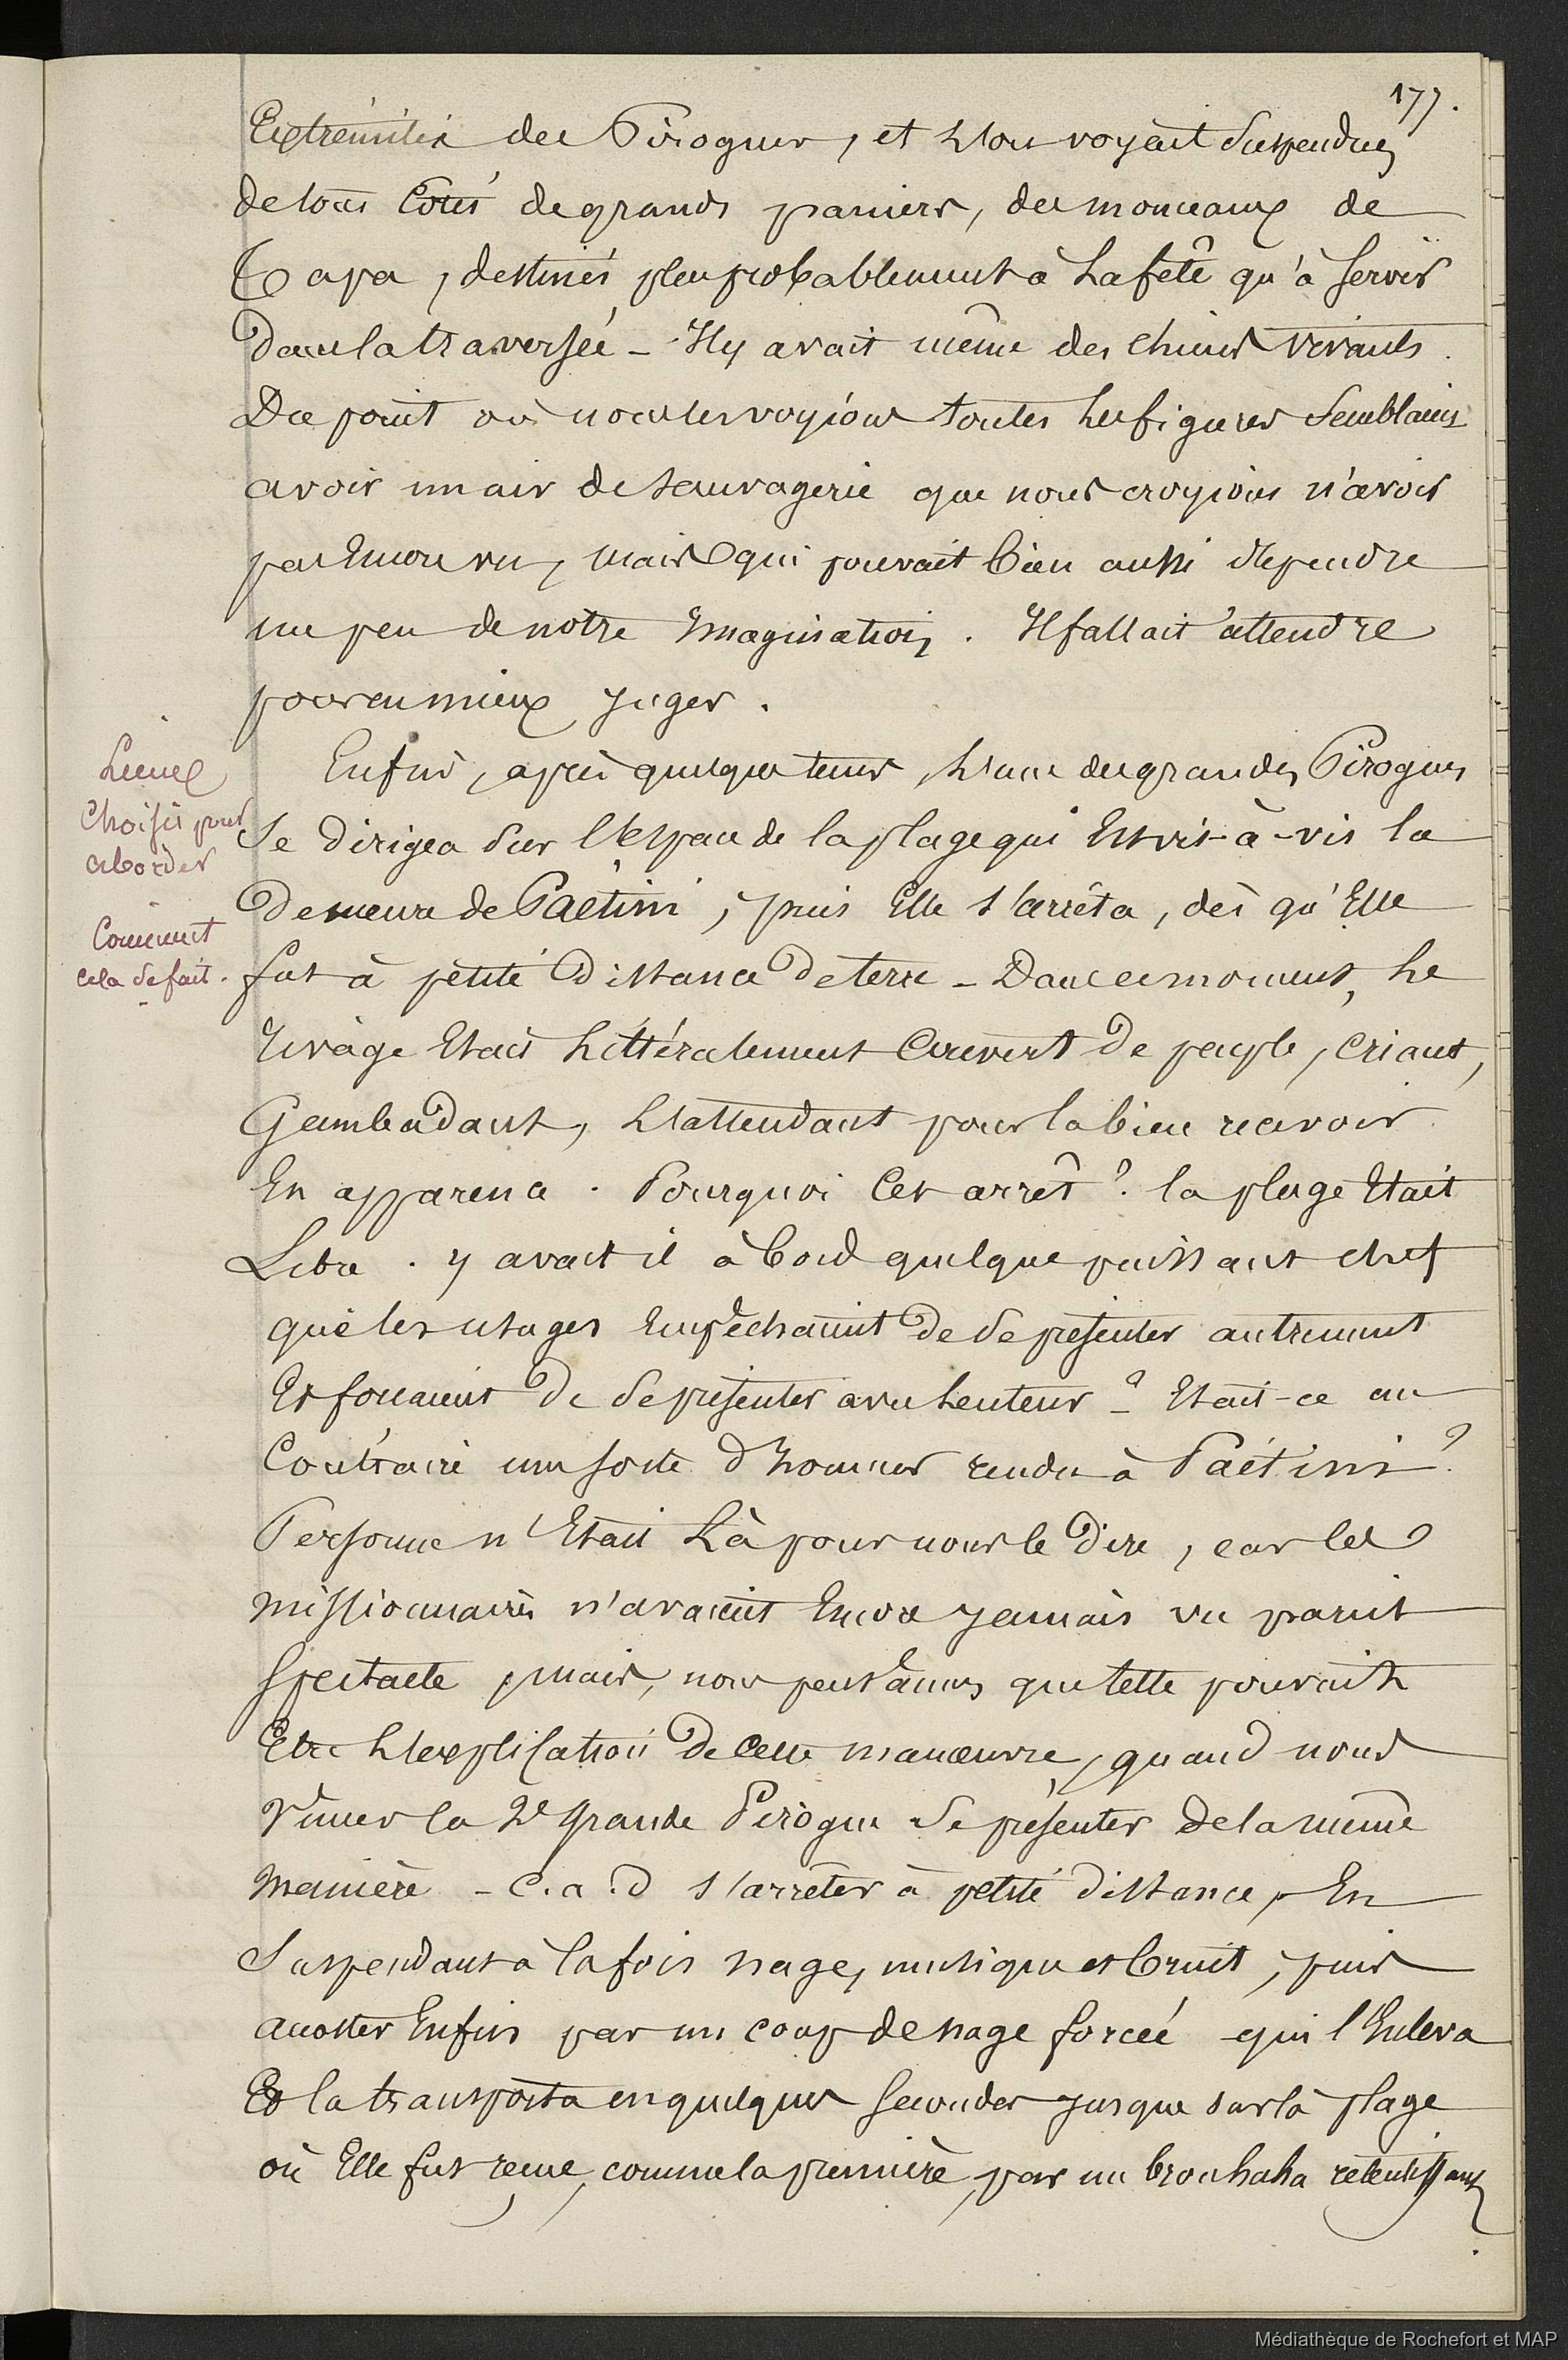 177.
Extrémités des Pirogues, et l'on voyait suspendus
de tous Cotés de grands paniers, des monceaux de
Tapa, destinés plus probablement à la fête qu'à servir
dans la traversée - Il y avait même des chiens vivants.
Du point où nous les voyions toutes les figures semblaient
avoir un air de sauvagerie que nous croyions n'avoir
pas Encore vu, mais qui pouvait bien aussi dépendre
un peu de notre Imagination. Il fallait attendre
pour en mieux juger.
Enfin, après quelques tems, l'une des grandes Pirogues
Lieux
Choisis pour
aborder
se dirigea sur l'Espace de la plage qui Est vis-à-vis la
demeure de Paétini, puis Elle s'arrêta, dès qu'Elle
Comment
cela se fait.
fut à petite distance de terre - Dans ce moment, le
rivage Etait Littéralement Couvert de peuple, criant,
Gambadant, l'attendant pour la bien recevoir
En apparence. Pourquoi Cet arrêt ? la plage Etait
Libre. y avait il à bord quelque puissant chef
que les usages Empêchaient de se présenter autrement
Et forçaient de se présenter avec lenteur ? - Etait-ce au
Contraire une sorte d'honneur rendu à Paétini ?
Personne n'Etait Là pour nous le dire, car les
missionnaires n'avaient Encore jamais vu pareil
spectacle, mais, nous pensâmes que telle pouvait
Etre l'explication de cette manœuvre, quand nous
vîmes la 2e grande Pirogue se présenter de la même
manière - C.a.d s'arrêter à petite distance, En
suspendant à la fois nage, musique et bruit, puis
accoster Enfin par un coup de nage forcée qui l'Enleva
Et la transporta en quelques secondes jusque sur la plage
où Elle fut reçue, comme la première, par un brouhaha retentissant.
Médiathèque de Rochefort et MAP